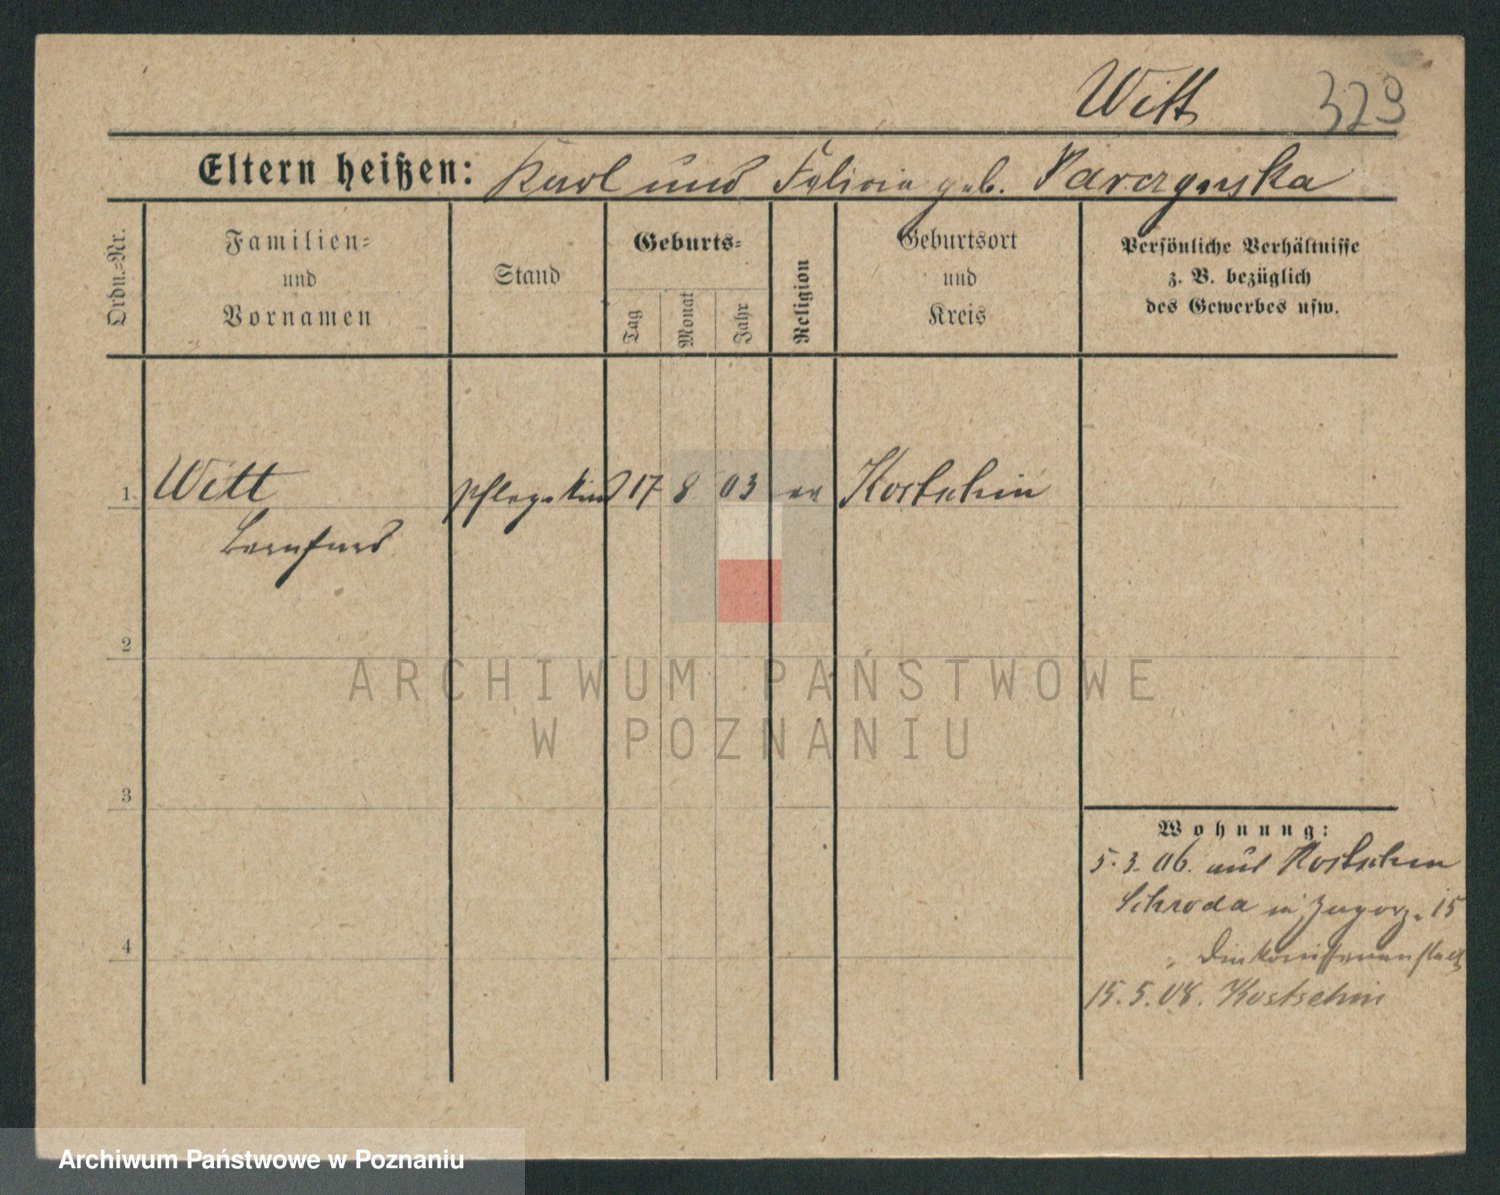 Witt 329
Eltern heißen: Karl und Felicia geb.
Ordn.=Nr.
Familien=
und
Vornamen
Stand
Geburts=
Tag
Monat
Jahr
Religion
Geburtsort
und
Kreis
Persönliche Verhältnisse
z. B. bezüglich
des Gewerbes usw.
1 Witt Pflegekind 17 8 03 ev Kostschin
2
ARCHIWUM PAŃSTWOWE
W POZNANIU
3
Wohnung:
5.3.06. aus Kostschin
Schroda in 15
4
Diakonissenanstalt
15.5.08. Kostschin
Archiwum Państwowe w Poznaniu